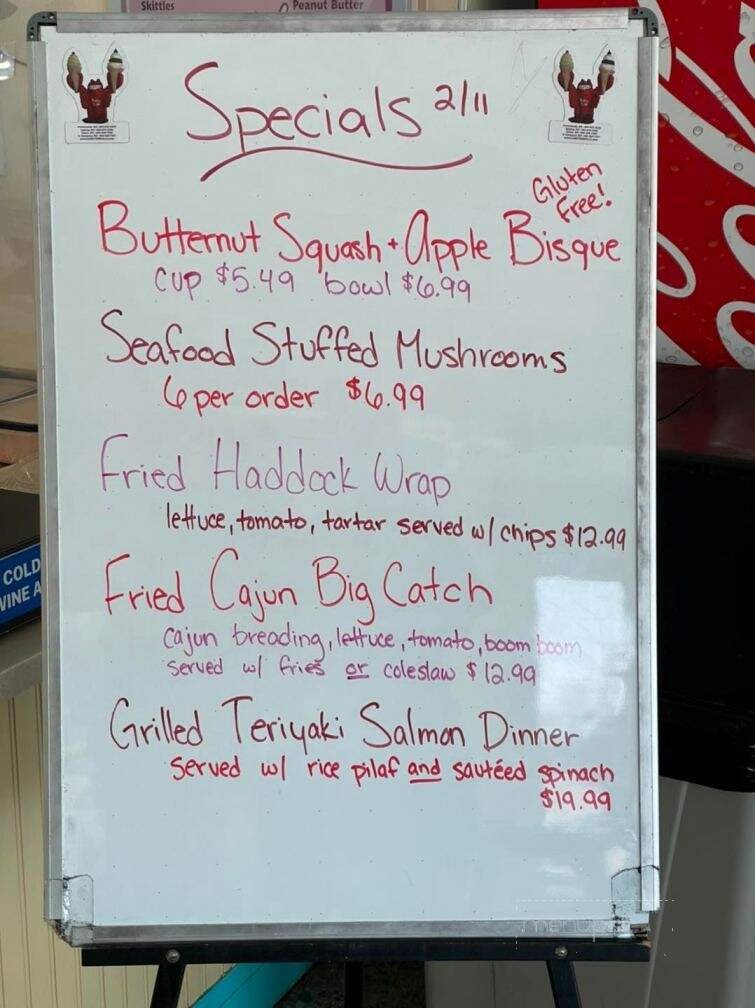 Skittles
Peanut Butter
Specials 2/11
Gluten
Free!
Butternut Squash + Apple Bisque
cup $5.49 bowl $6.99
Seafood Stuffed Mushrooms
6 per order $6.99
Fried Haddock Wrap
lettuce, tomato, tartar served w/ chips $12.99
Fried Cajun Big Catch
cajun breading, lettuce, tomato, boom boom
served w/ fries or coleslaw $12.99
Grilled Teriyaki Salmon Dinner
served w/ rice pilaf and sautéed spinach
$19.99
COLD
WINE A